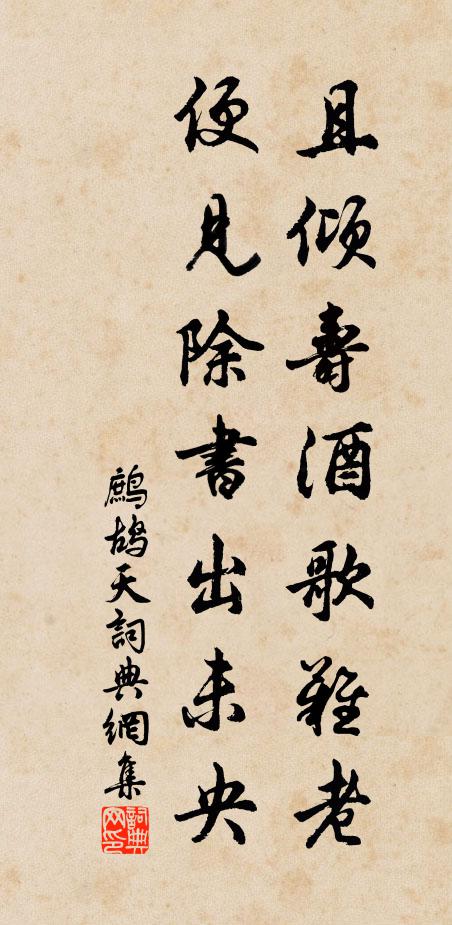 且傾壽酒歌難老
便見除書出未央
鷓鴣天詞典網集
詞典網印